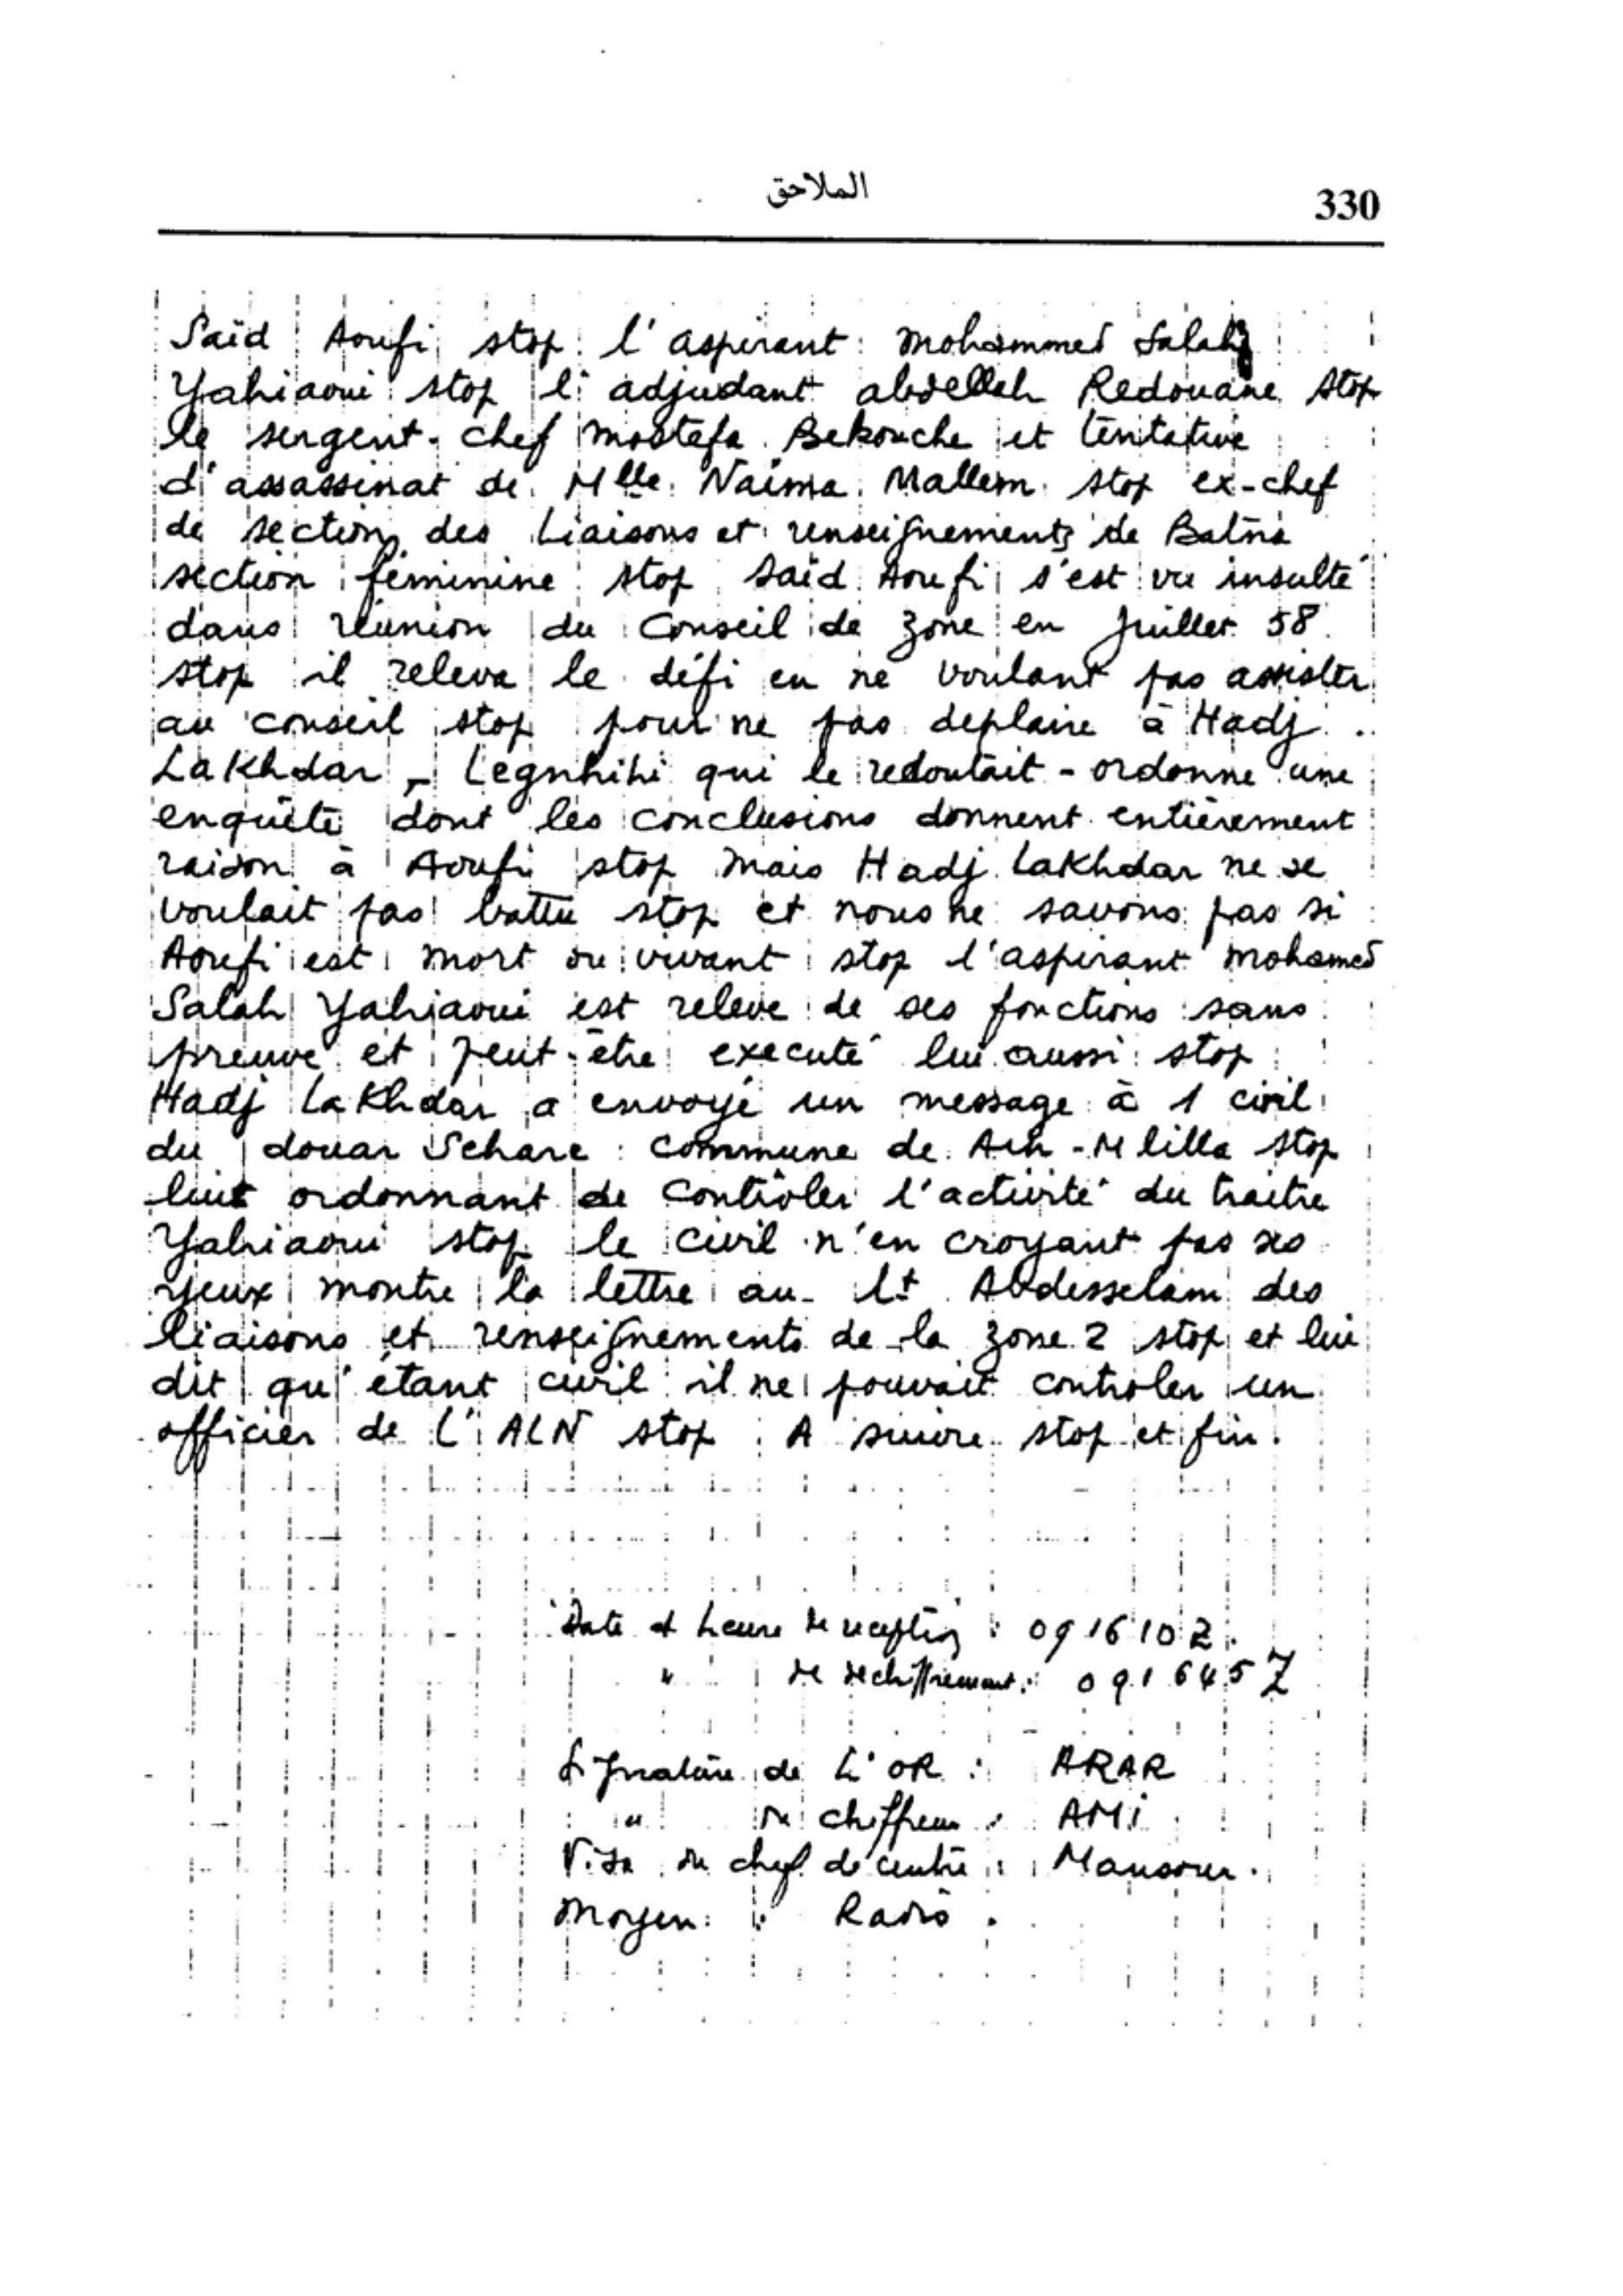 الملاحق
330
Saïd Aoufi stop l'aspirant Mohammed Salah
Yahiaoui stop l'adjudant Abdellah Redouane stop
le sergent-chef Mostefa Bekouche et tentative
d'assassinat de Mlle Naïma Mallem stop ex-chef
de section des liaisons et renseignements de Batna
section feminine stop Saïd Aoufi s'est vu insulté
dans réunion du Conseil de zone en Juillet 58
stop il releva le défi en ne voulant pas assister
au conseil stop pour ne pas deplaire à Hadj
Lakhdar - qui le redoutait - ordonne une
enquête dont les conclusions donnent entièrement
raison à Aoufi stop mais Hadj Lakhdar ne se
voulait pas battu stop et nous ne savons pas si
Aoufi est mort ou vivant stop l'aspirant Mohamed
Salah Yahiaoui est releve de ses fonctions sans
preuve et peut-être executé lui aussi stop
Hadj Lakhdar a envoyé un message à 1 civil
du douar commune de Ain-Mlilla stop
ordonnant de contrôler l'activité du traitre
Yahiaoui stop le civil n'en croyant pas ses
yeux montre la lettre au Lt Abdesselam des
liaisons et renseignements de la zone 2 stop et lui
dit qu'étant civil il ne pouvait controler un
officier de l'ALN stop A suivre stop et fin.
Date et heure de reception : 091610Z
" de dechiffrement : 091645Z
Signature de l'OR : ARAR
" du chiffreur : AMI
Visa du chef de centre : Mansour.
Moyen : Radio.